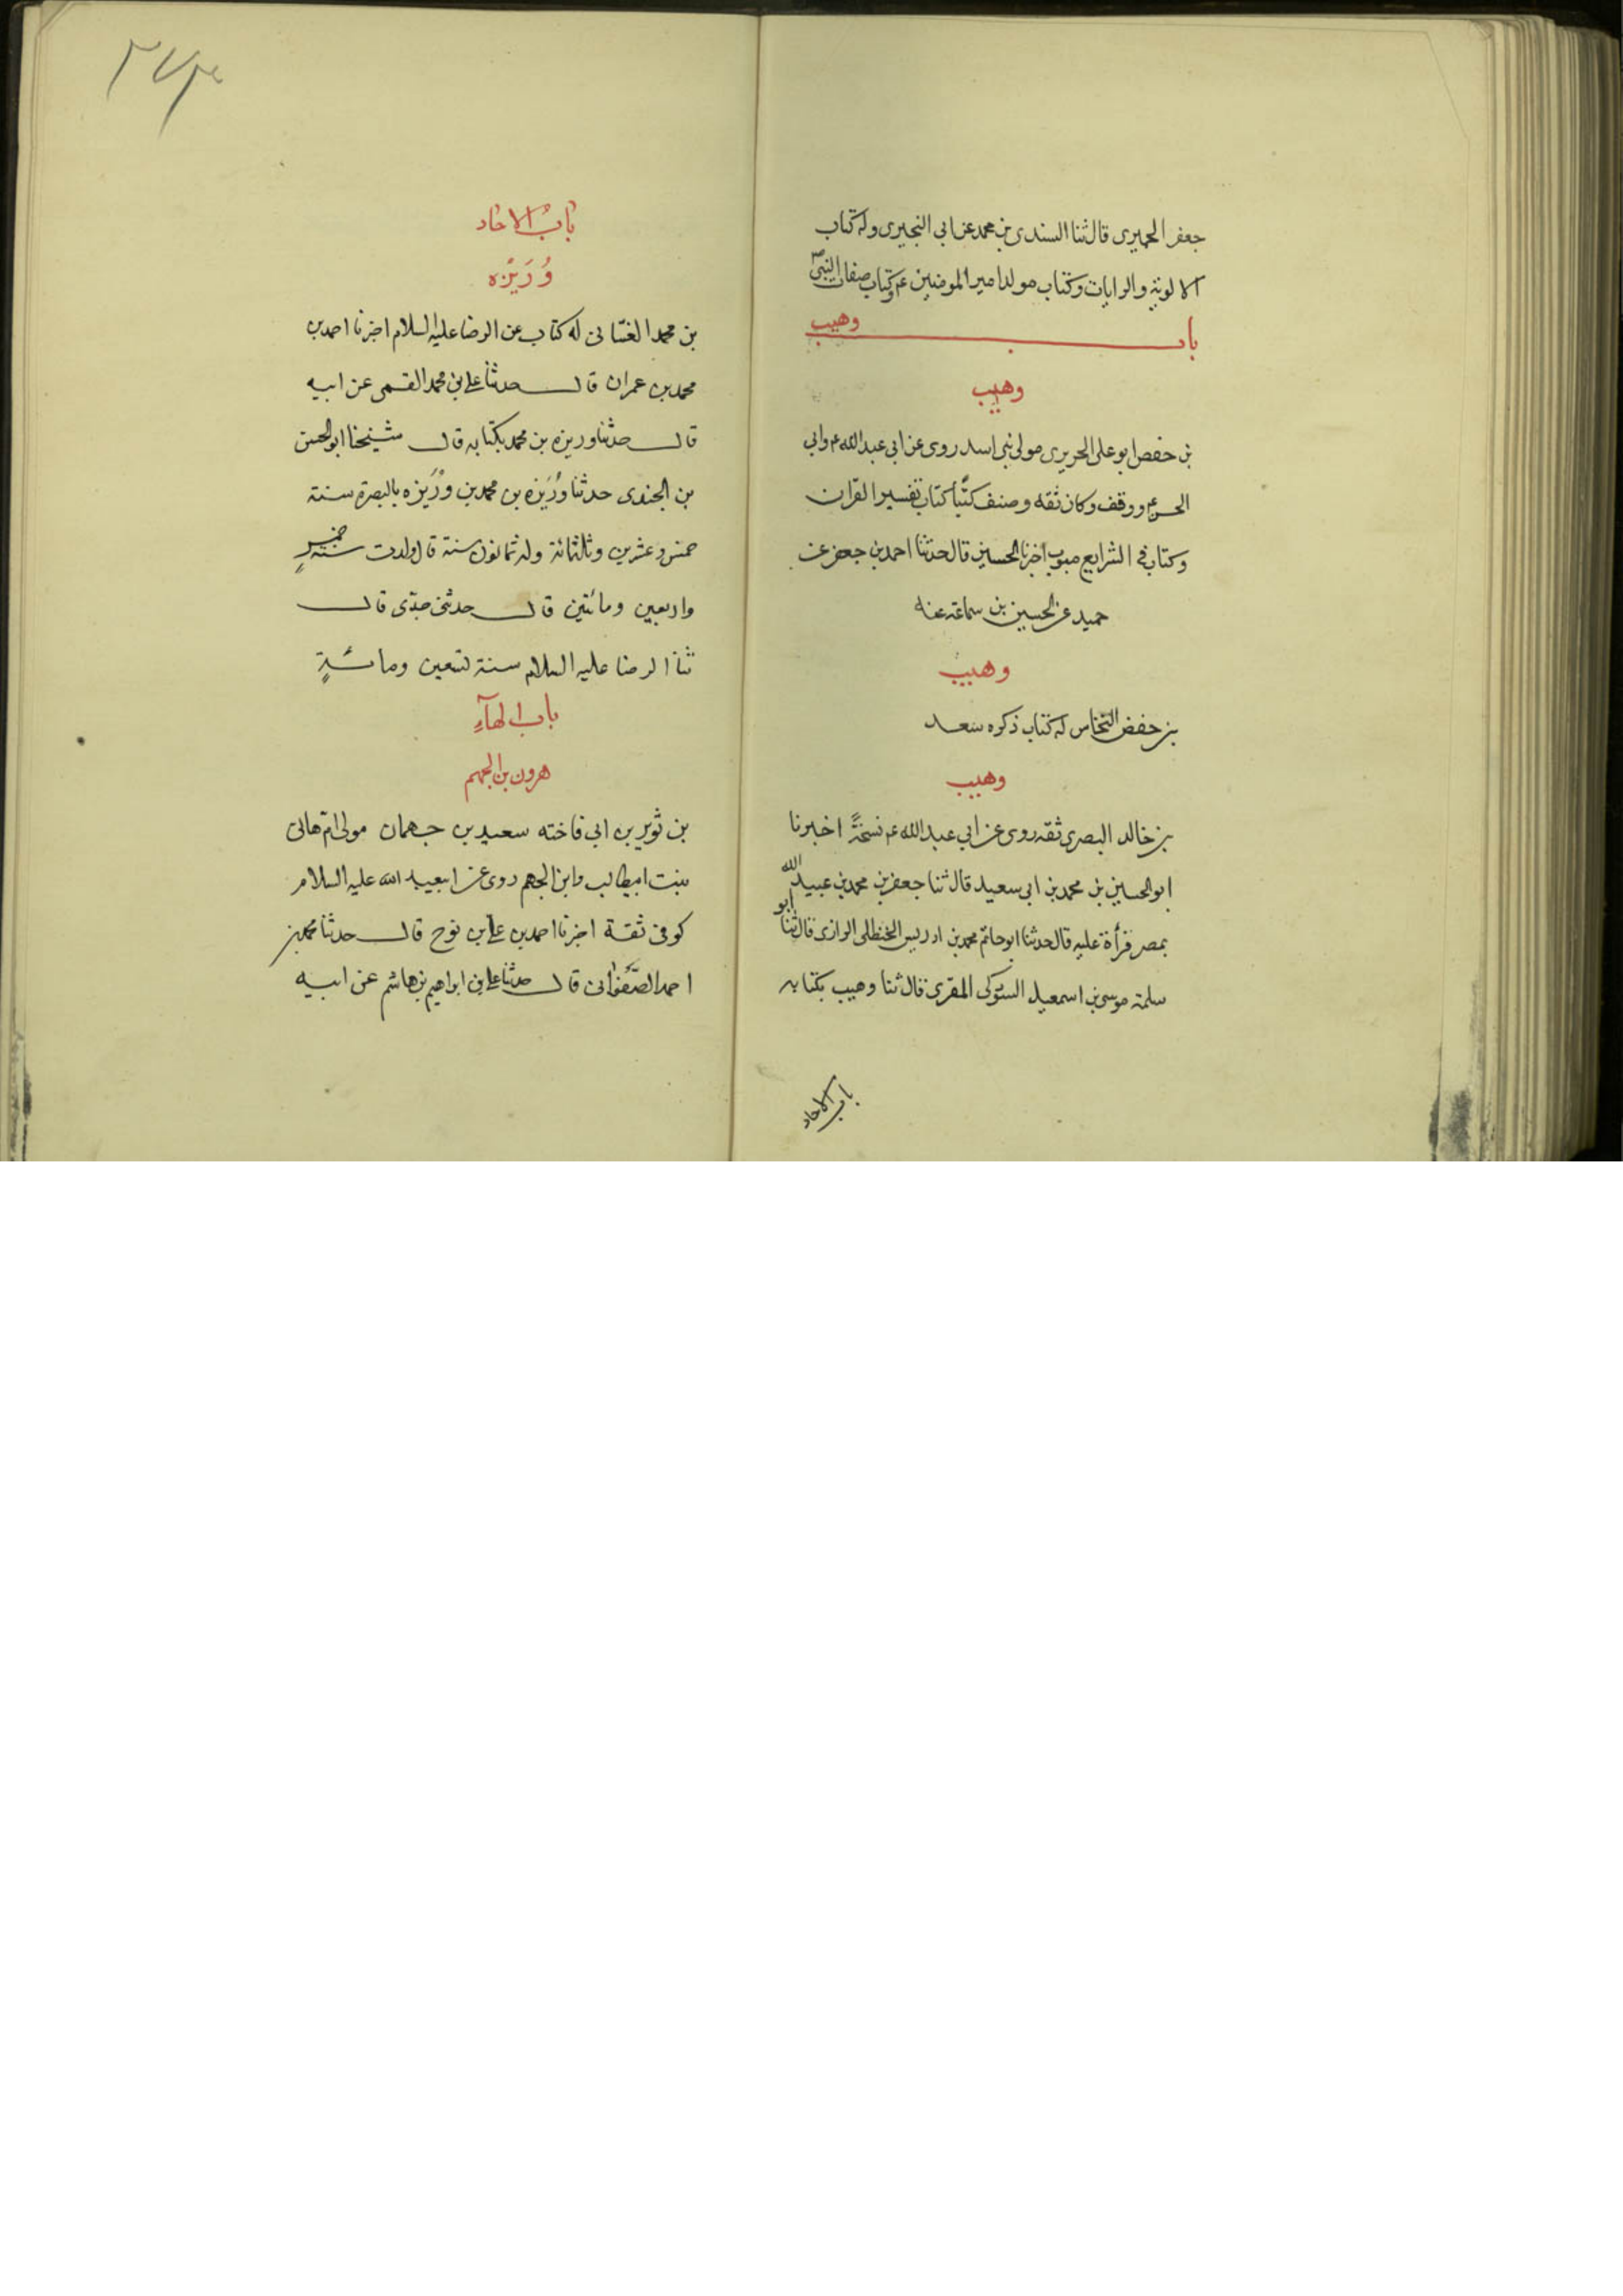 جعفر الحميرى قال ثنا السندى بن محمد عن ابى البخيرى وله كتاب
الالوية والرايات وكتاب مولد امير المومنين عم وكتاب صفات النبى ص
باب وهيب
وهيب
بن حفص ابو على الحريرى مولى بنى اسد روى عن ابى عبد الله عم وابى
الحسن عم ووقف وكان ثقه وصنف كتبًا كتاب تفسير القران
وكتاب فى الشرايع مبوب اخبرنا الحسين قال حدثنا احمد بن جعفر عن
حميد عن الحسين بن سماعة عنه
وهيب
بن حفض النخاس له كتاب ذكره سعد
وهيب
بن خالد البصرى ثقه روى عن ابى عبد الله عم نسخةً اخبرنا
ابو الحسين بن محمد بن ابى سعيد قال ثنا جعفر بن محمد بن عبيد الله
بمصر قرأة عليه قال حدثنا ابو حاتم محمد بن ادريس الحنظلى الرازى قال ثنا ابو
سلمة موسى بن اسمعيل المقرى قال ثنا وهيب بكتابه
باب الاحاد
باب الاحاد
وُرَيْزه
بن محمد الغسانى له كتاب عن الرضا عليه السلام اخبرنا احمد بن
محمد بن عمران قال حدثنا على بن محمد القمى عن ابيه
قال حدثنا وريزه بن محمد بكتابه قال شيخنا ابو الحسن
بن الجندى حدثنا وُرَيْزه بن محمد بن وُرَيْزه بالبصرة سنة
خمس وعشرين وثلثمائة وله ثمانون سنة قال ولدت سنة خمس
واربعين ومائتين قال حدثنى جدّى قال
ثنا الرضا عليه السلام سنة تسعين ومائةٍ
باب الهآءِ
هرون بن الجهم
بن ثوير بن ابى فاخته سعيد بن جهمان مولى امّ هانى
بنت ابيطالب وابن الجهم روى عن ابيعبد الله عليه السلام
كوفى ثقة اخبرنا احمد بن على بن نوح قال حدثنا محمد بن
احمد الصّفوانى قال حدثنا على بن ابراهيم بن هاشم عن ابيه